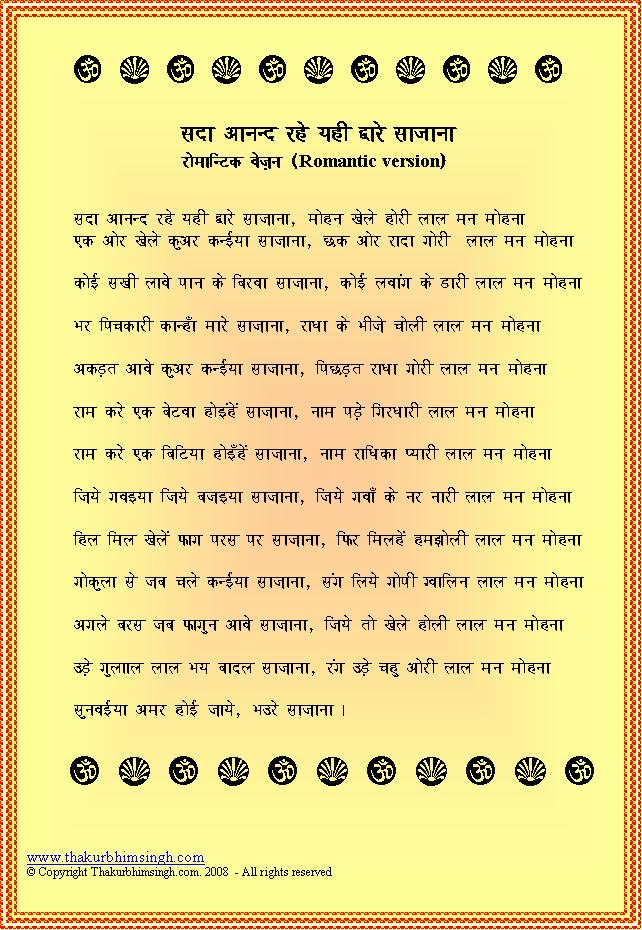 सदा आनन्द रहे यही द्वारे साजाना
रोमान्टिक वेज़न (Romantic version)
सदा आनन्द रहे यही द्वारे साजा़ना, मोहन खेले होरी लाल मन मोहना
एक ओर खेले कुअर कन्ईया साजा़ना, छक ओर रादा गोरी लाल मन मोहना
कोई सखी लावे पान के बिरवा साजा़ना, कोई लवांग के डारी लाल मन मोहना
भर पिचकारी कान्हाँ मारे साजा़ना, राधा के भीजे चोली लाल मन मोहना
अकड़त आवे कुअर कन्ईया साजा़ना, पिछड़त राधा गोरी लाल मन मोहना
राम करे एक बेटवा होइंहें साजा़ना, नाम पड़े गिरधारी लाल मन मोहना
राम करे एक बिटिया होइँहें साजा़ना, नाम राधिका प्यारी लाल मन मोहना
जि़ये गवइया जि़ये बजइया साजा़ना, जि़ये गवाँ के नर नारी लाल मन मोहना
हिल मिल खेलें फाग परस पर साजा़ना, फिर मिलहें हमझोली लाल मन मोहना
गोकुला से जब चले कन्ईया साजा़ना, संग लिये गोपी ग्वालिन लाल मन मोहना
अगले बरस ज़ब फागुन आवे साजा़ना, जि़ये तो खेले होली लाल मन मोहना
उड़े गुलााल लाल भय बादल साजा़ना, रंग उड़े चहु ओरी लाल मन मोहना
सुनवईया अमर होई जा़ये, भउरे साजा़ना ।
www.thakurbhimsingh.com
© Copyright Thakurbhimsingh.com. 2008 - All rights reserved